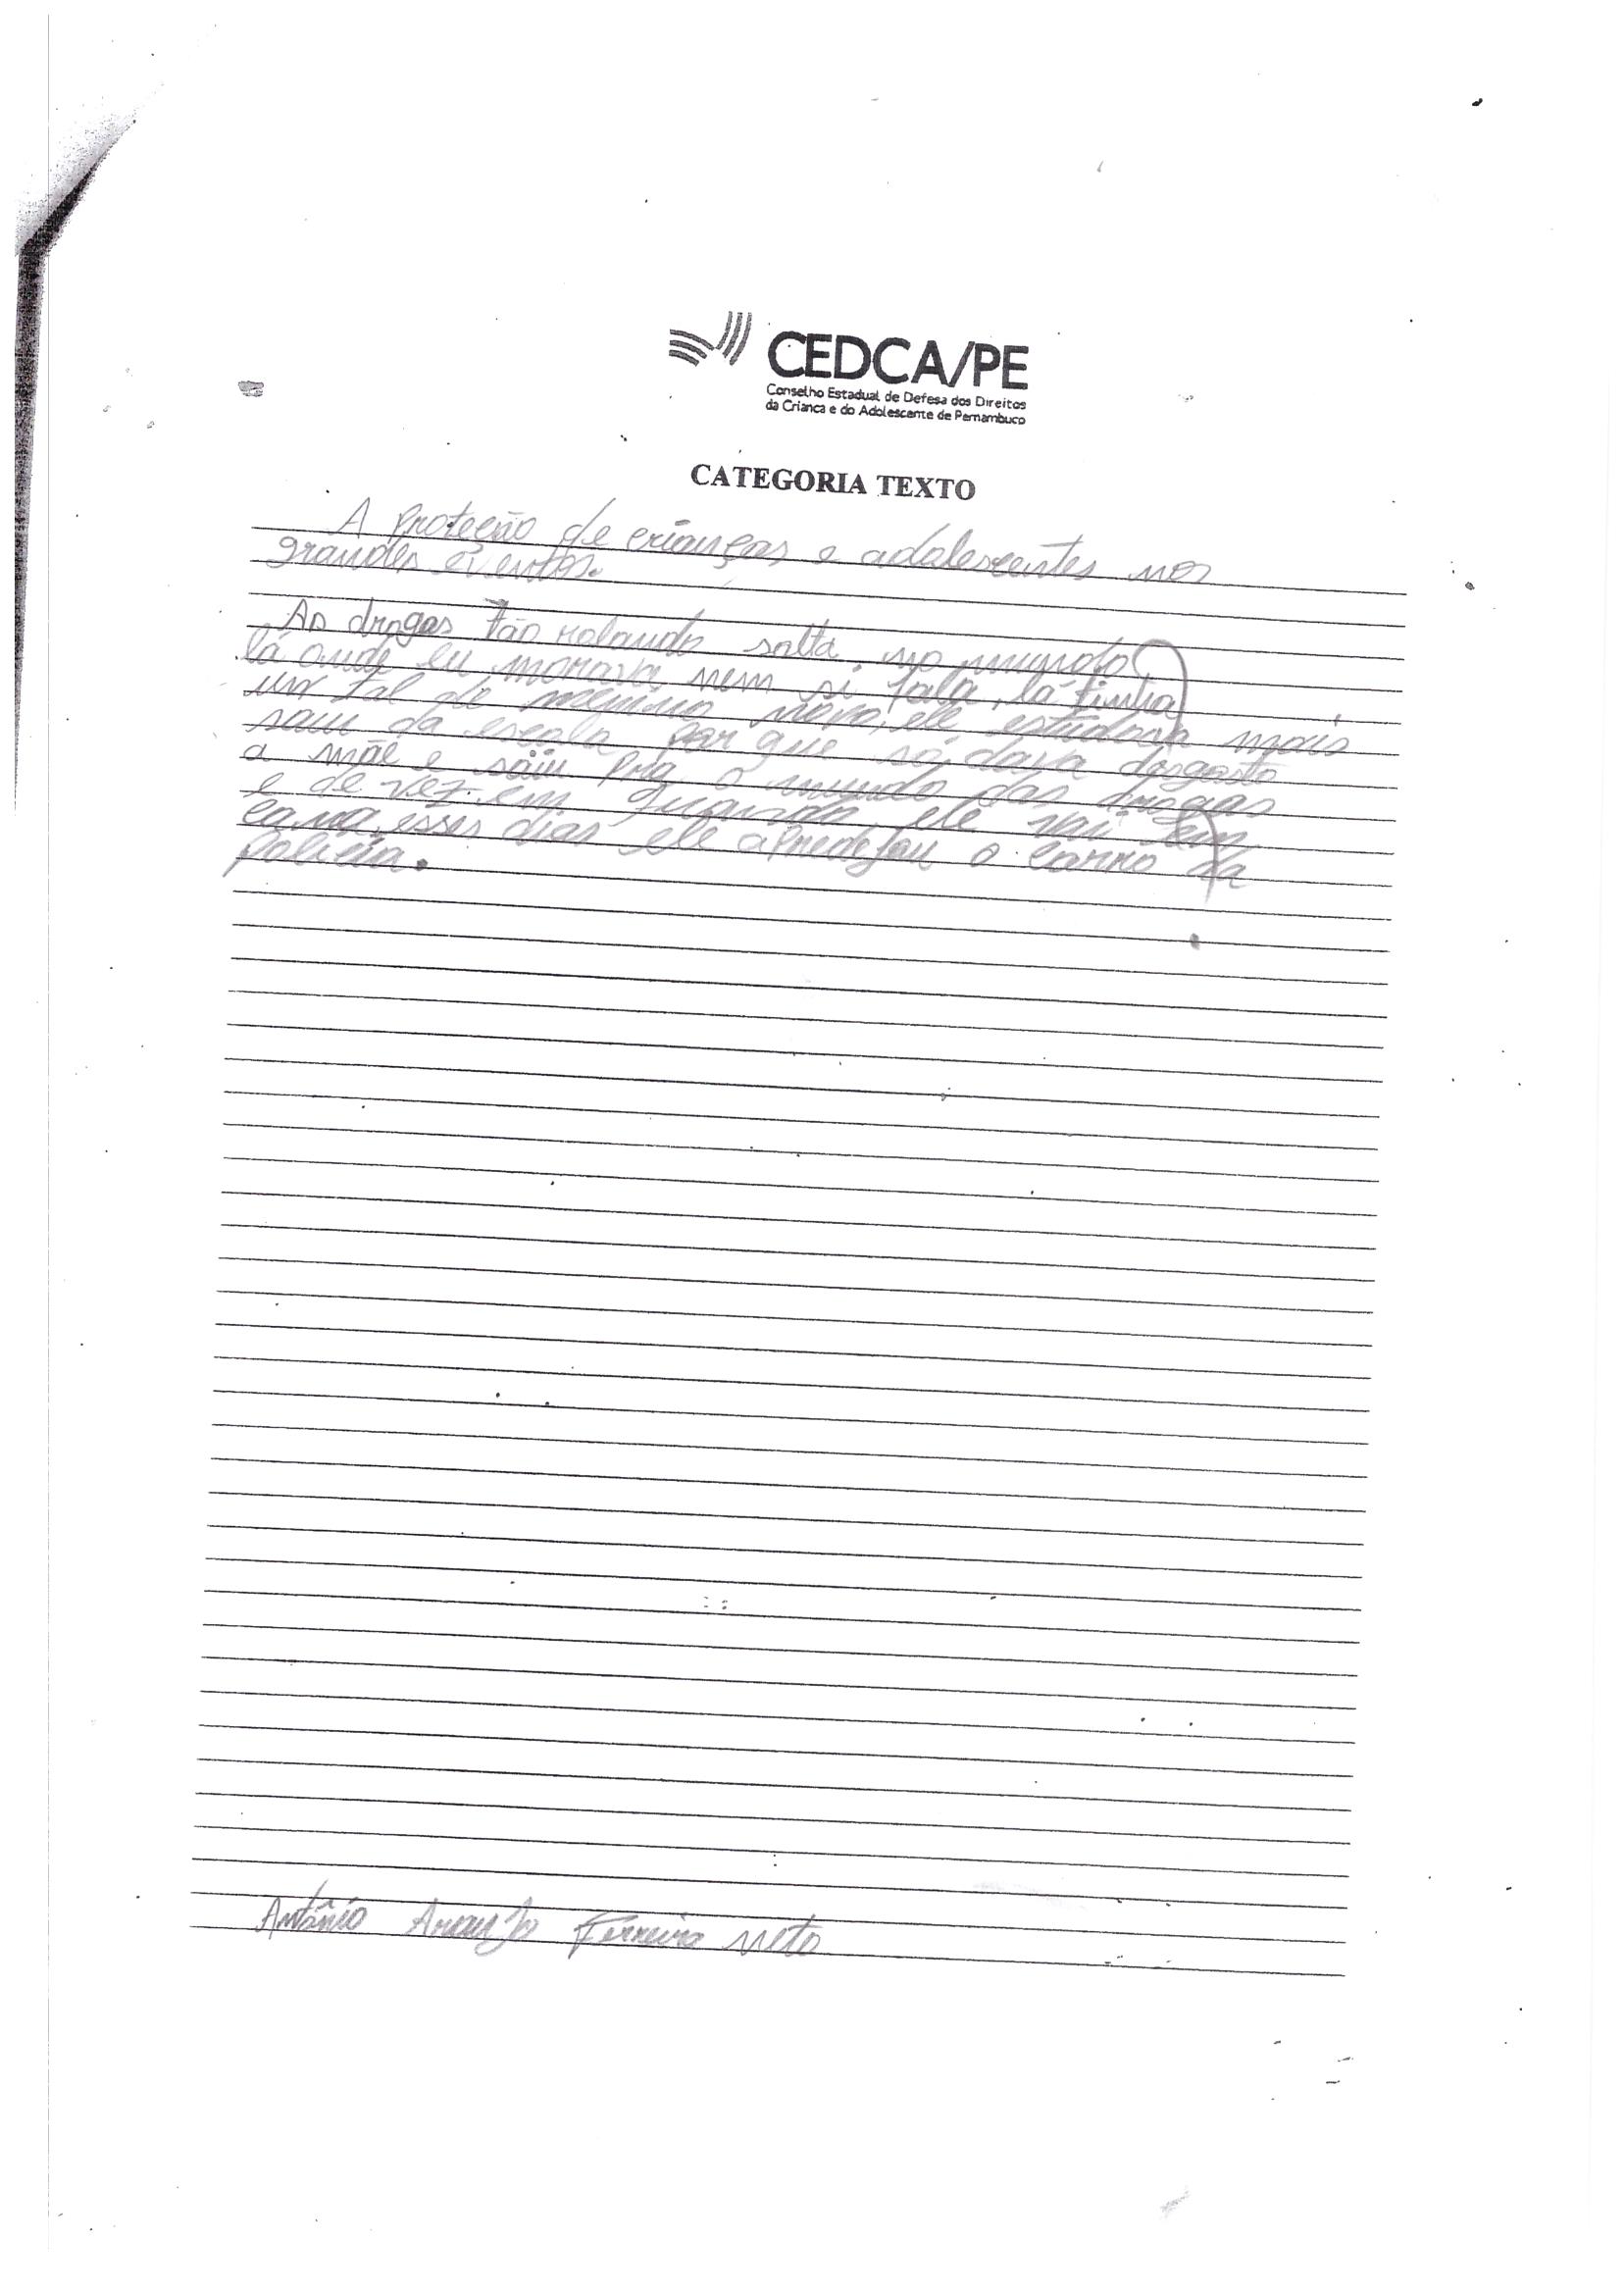 CEDCA/PE
Conselho Estadual de Defesa dos Direitos
da Criança e do Adolescente de Pernambuco
CATEGORIA TEXTO
A proteção de crianças e adolescentes nos
grandes eventos.
As drogas tão rolando solta no mundo,
lá onde eu morava nem si fala, lá tinha
um tal de menino novo, ele estudava mais
saiu da escola por que só dava disgosto
a mãe e saiu pra o mundo das drogas
e de vez em quando ele vai em
cana, esses dias ele apredejou o carro da
policia.
Antônio Araujo Ferreira Neto